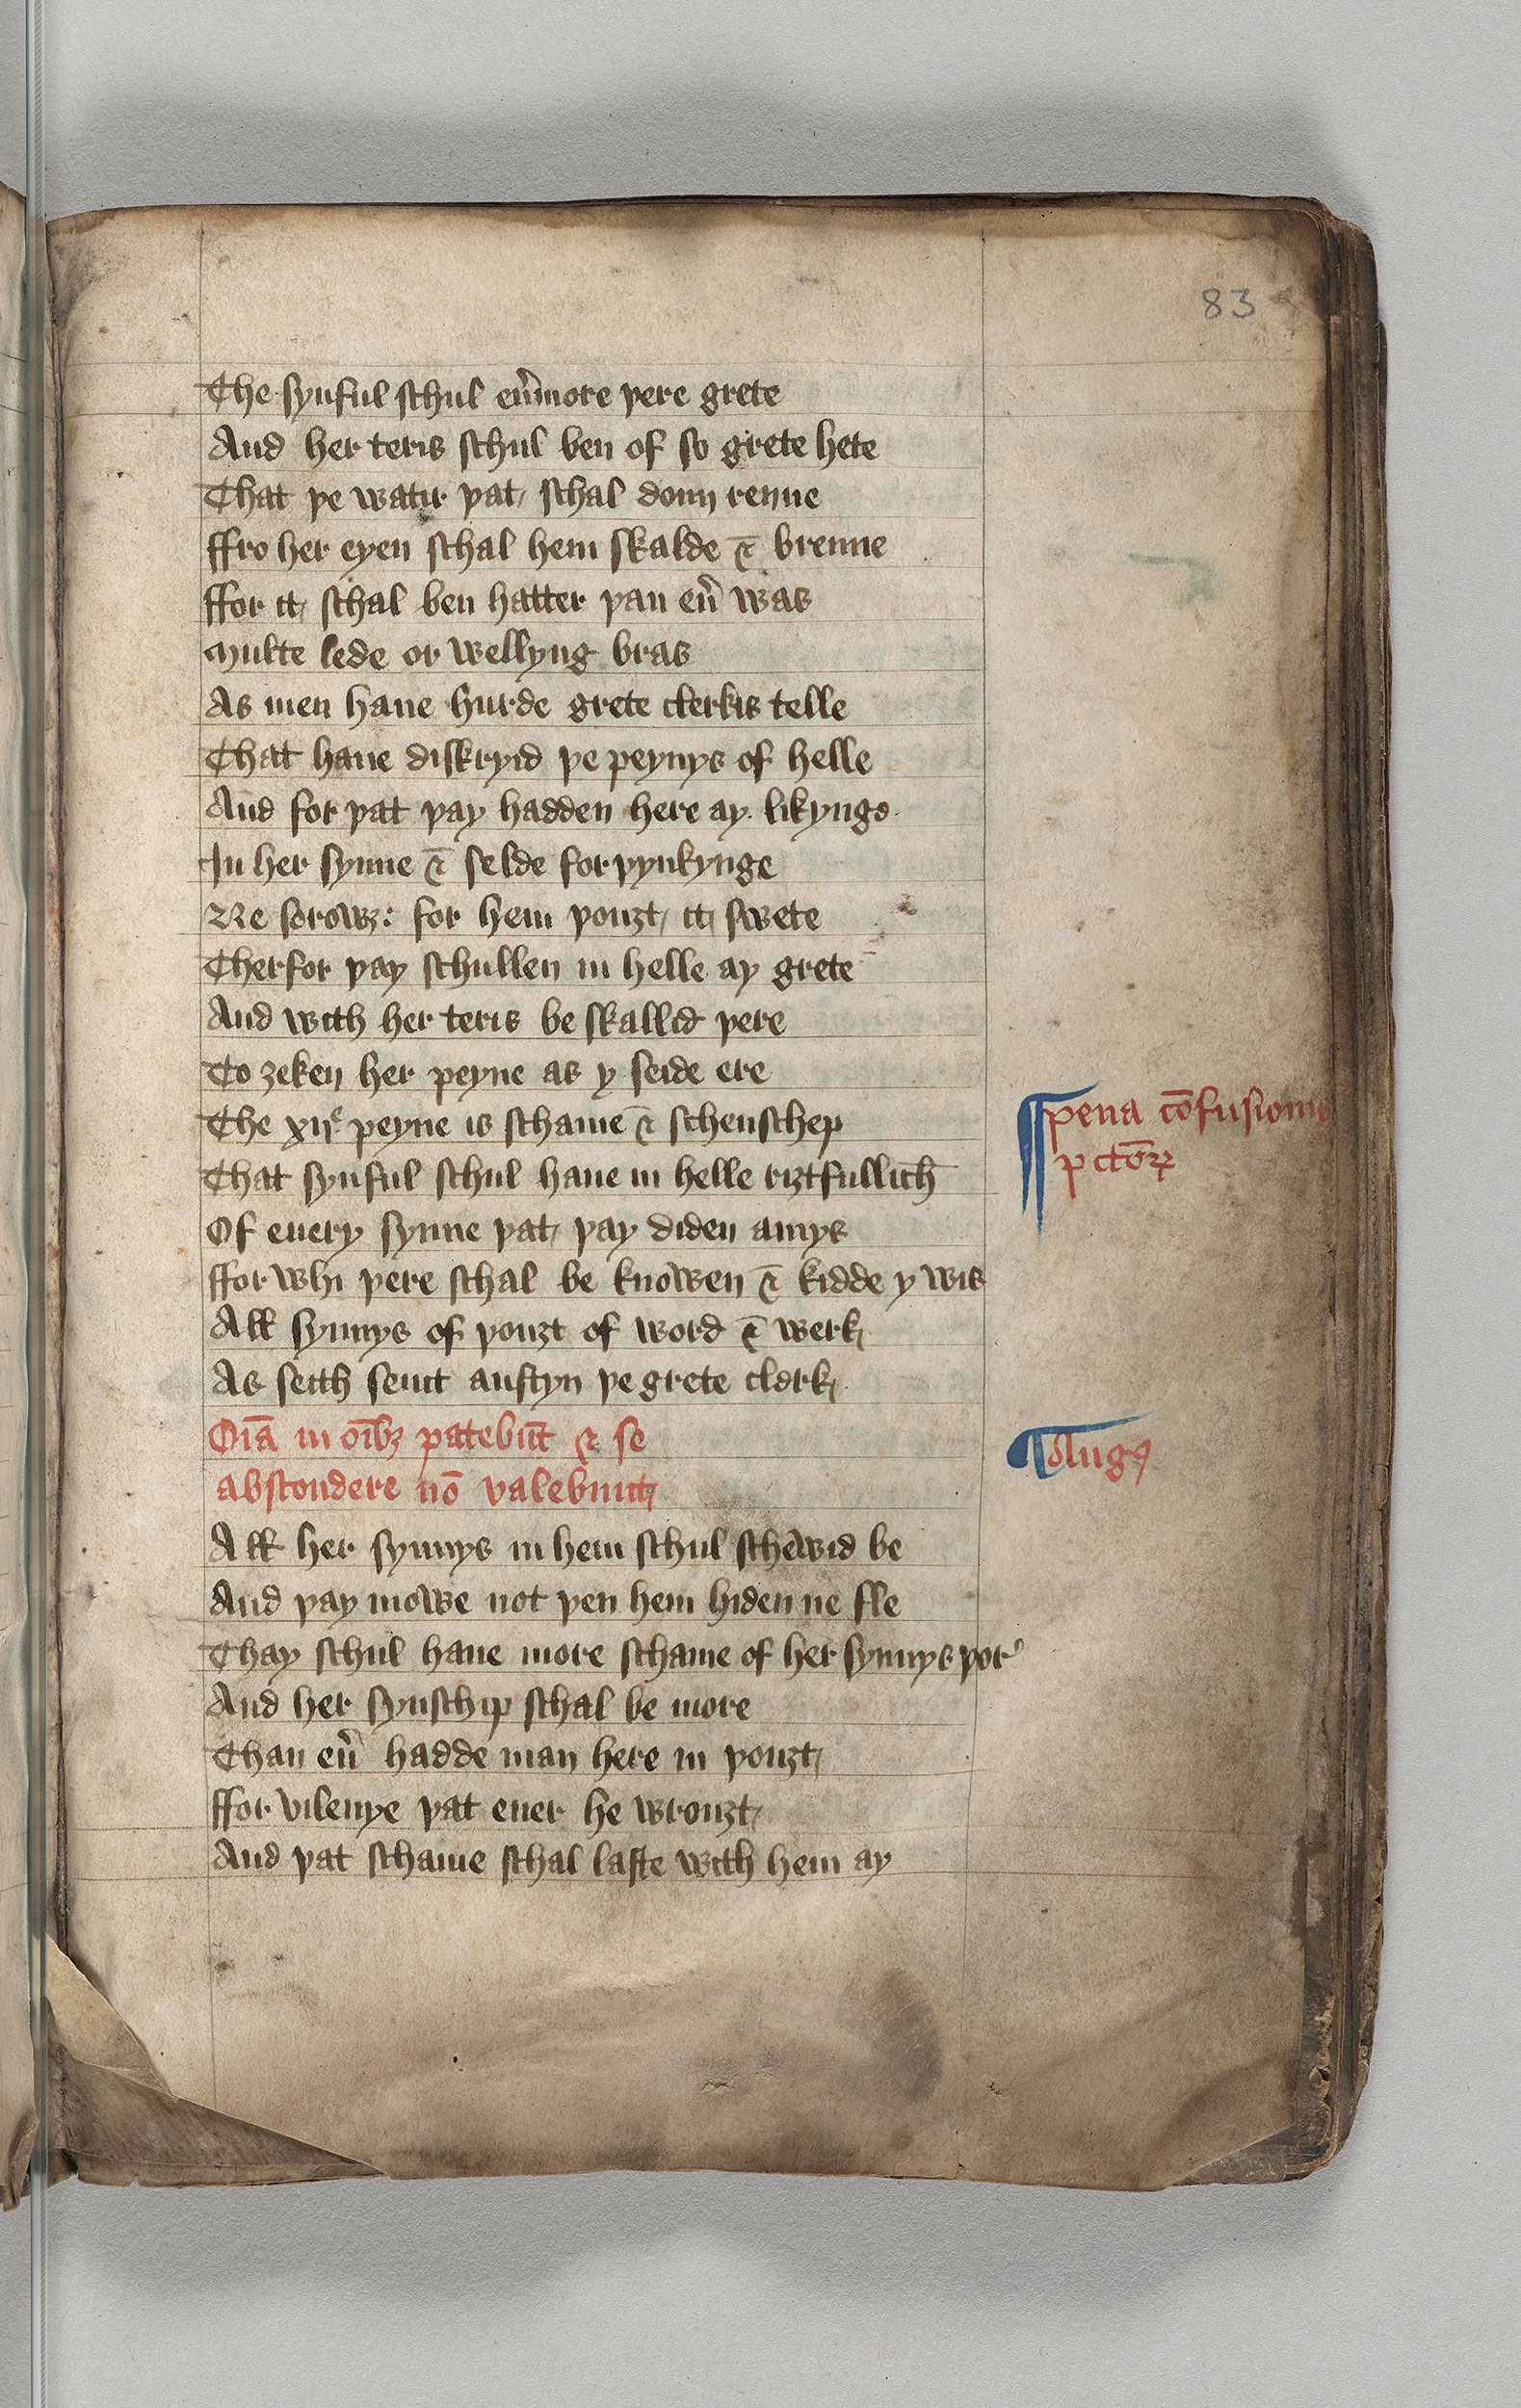 83
The synful schul eu̾more þere grete
And her teris schul ben of so grete hete
That þe watir þat schal doun renne
ffro her eyen schal hem skalde ⁊ brenne
ffor it schal ben hatter þan eu̾ was
Multe lede or wellyng bras
As men haue hurde grete clerkis telle
That haue diskryid þe peynys of helle
And for þat þay hadden here ay likynge
In her synne ⁊ selde forþynkynge
Ne sorowȝ: for hem þouȝt it swete
Therfor þay schullen in helle ay grete
And with her teris be skallid þere
To ȝeken her peyne as y seide ere
The xijᵉ peyne is schame ⁊ schenschep
pena cōfusionis
That synful schul haue in helle riȝtfullich̄
pctōꝝ
Of euery synne þat þay diden amys
ffor whi þere schal be knowen ⁊ kidde y wis
All synnys of þouȝt of word ⁊ werk
As seith seint austyn þe grete clerk
Oīa in oībȝ patebūt ⁊ se
Augꝰ
abscondere nō valebunt
All her synnys in hem schul schewid be
And þay mowe not þen hem hiden ne fle
Thay schul haue more schame of her synnys þor̾
And her synschip schal be more
Than eu̾ hadde man here in þouȝt
ffor vilenye þat euer he wrouȝt
And þat schame schal laste with hem ay